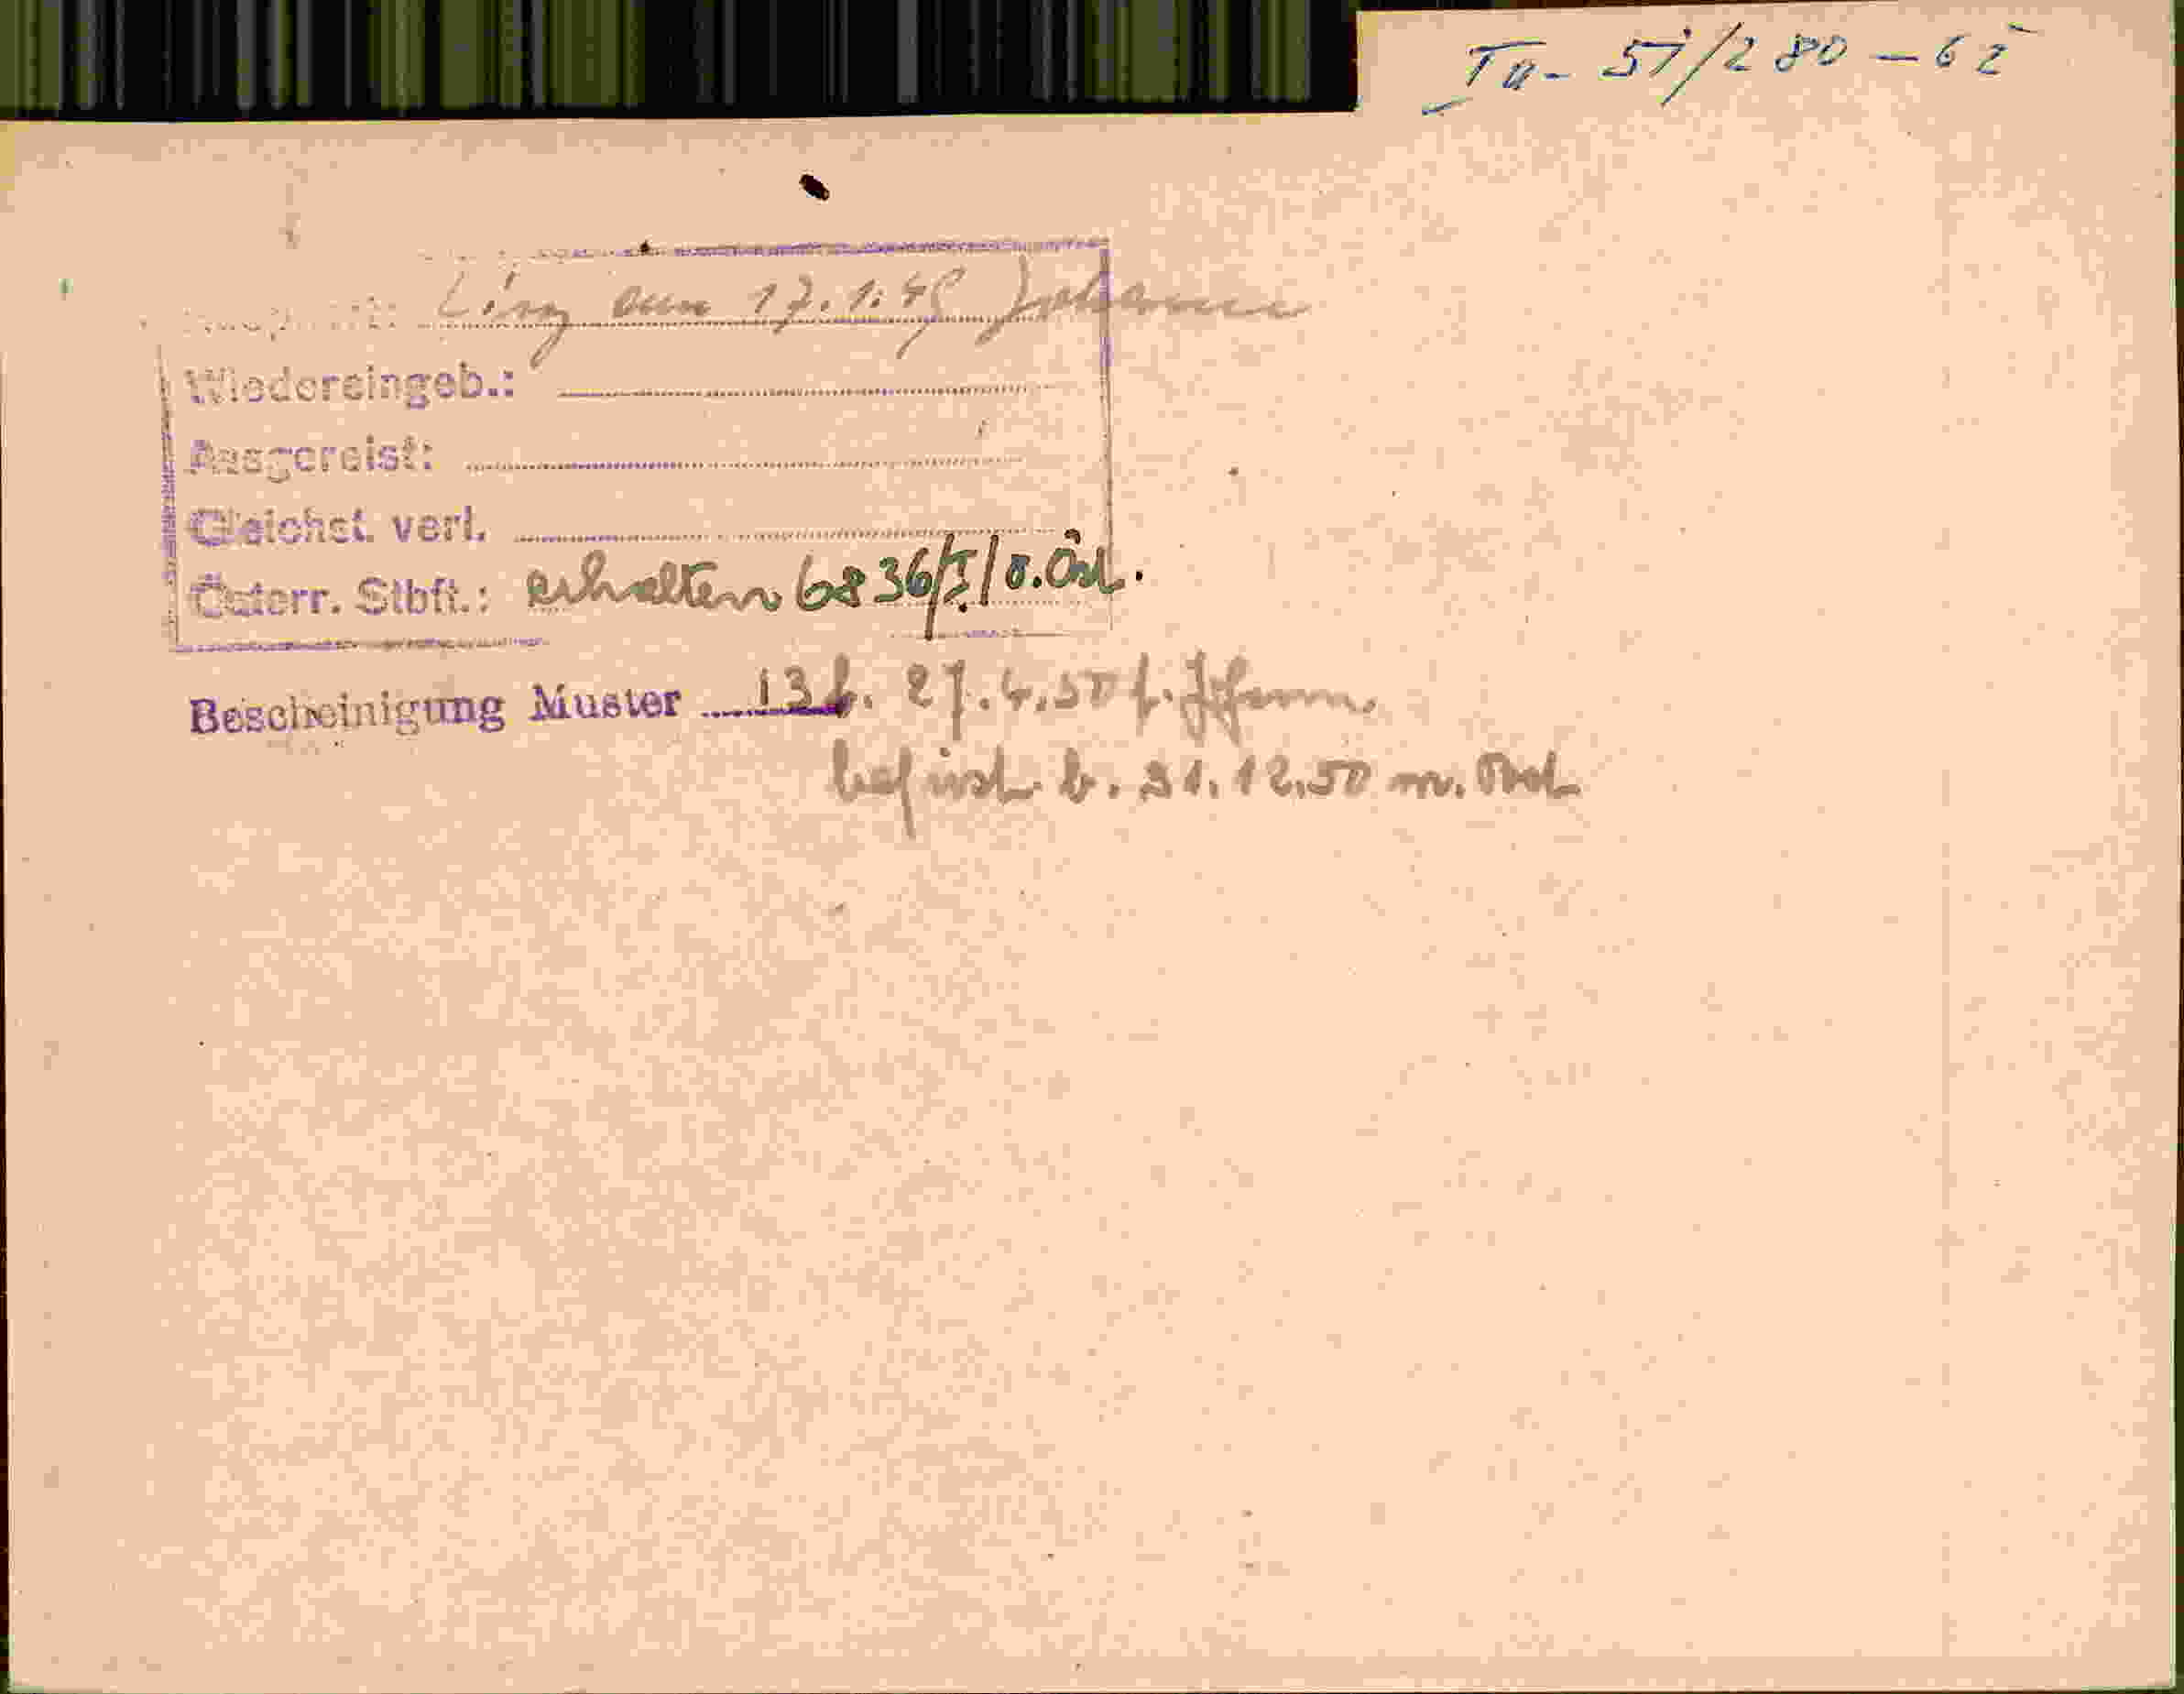 51/280-62
Linz am 17.1.49 Johann
Wiedereingeb.:
Ausgereist:
Gleichst. verl.
Österr. Stbft.: erhalten 6836/I/O.Öst.
Bescheinigung Muster 13b. 27.4.50 f. Johann
b. 31.12.50